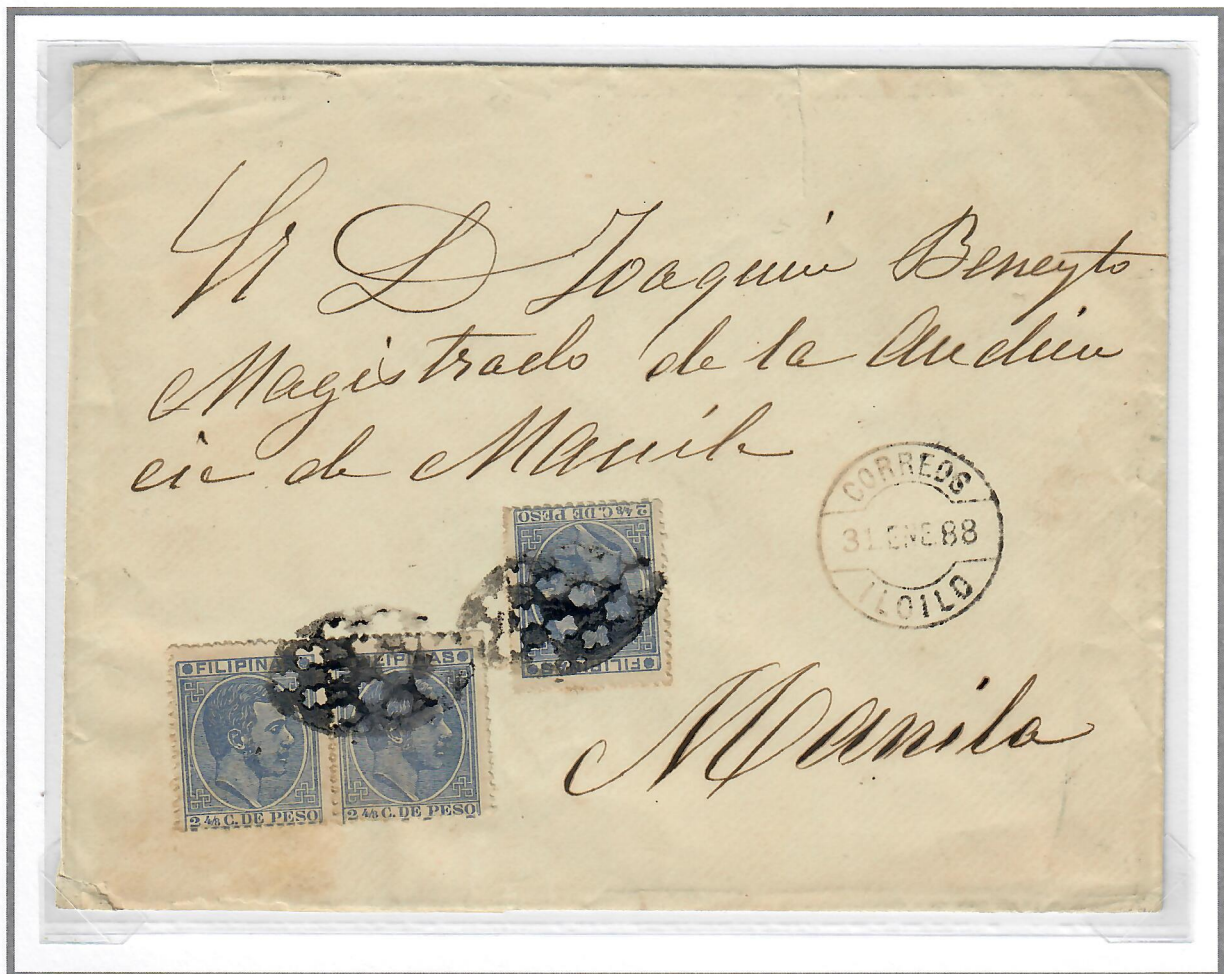 Sr D Joaquin Beneyto
Magistrado de la Audien
cia de Manila
CORREOS
31 ENE 88
ILOILO
2 4/8 C. DE PESO
FILIPINAS
FILIPINAS
FILIPINAS
2 4/8 C. DE PESO
2 4/8 C. DE PESO
Manila